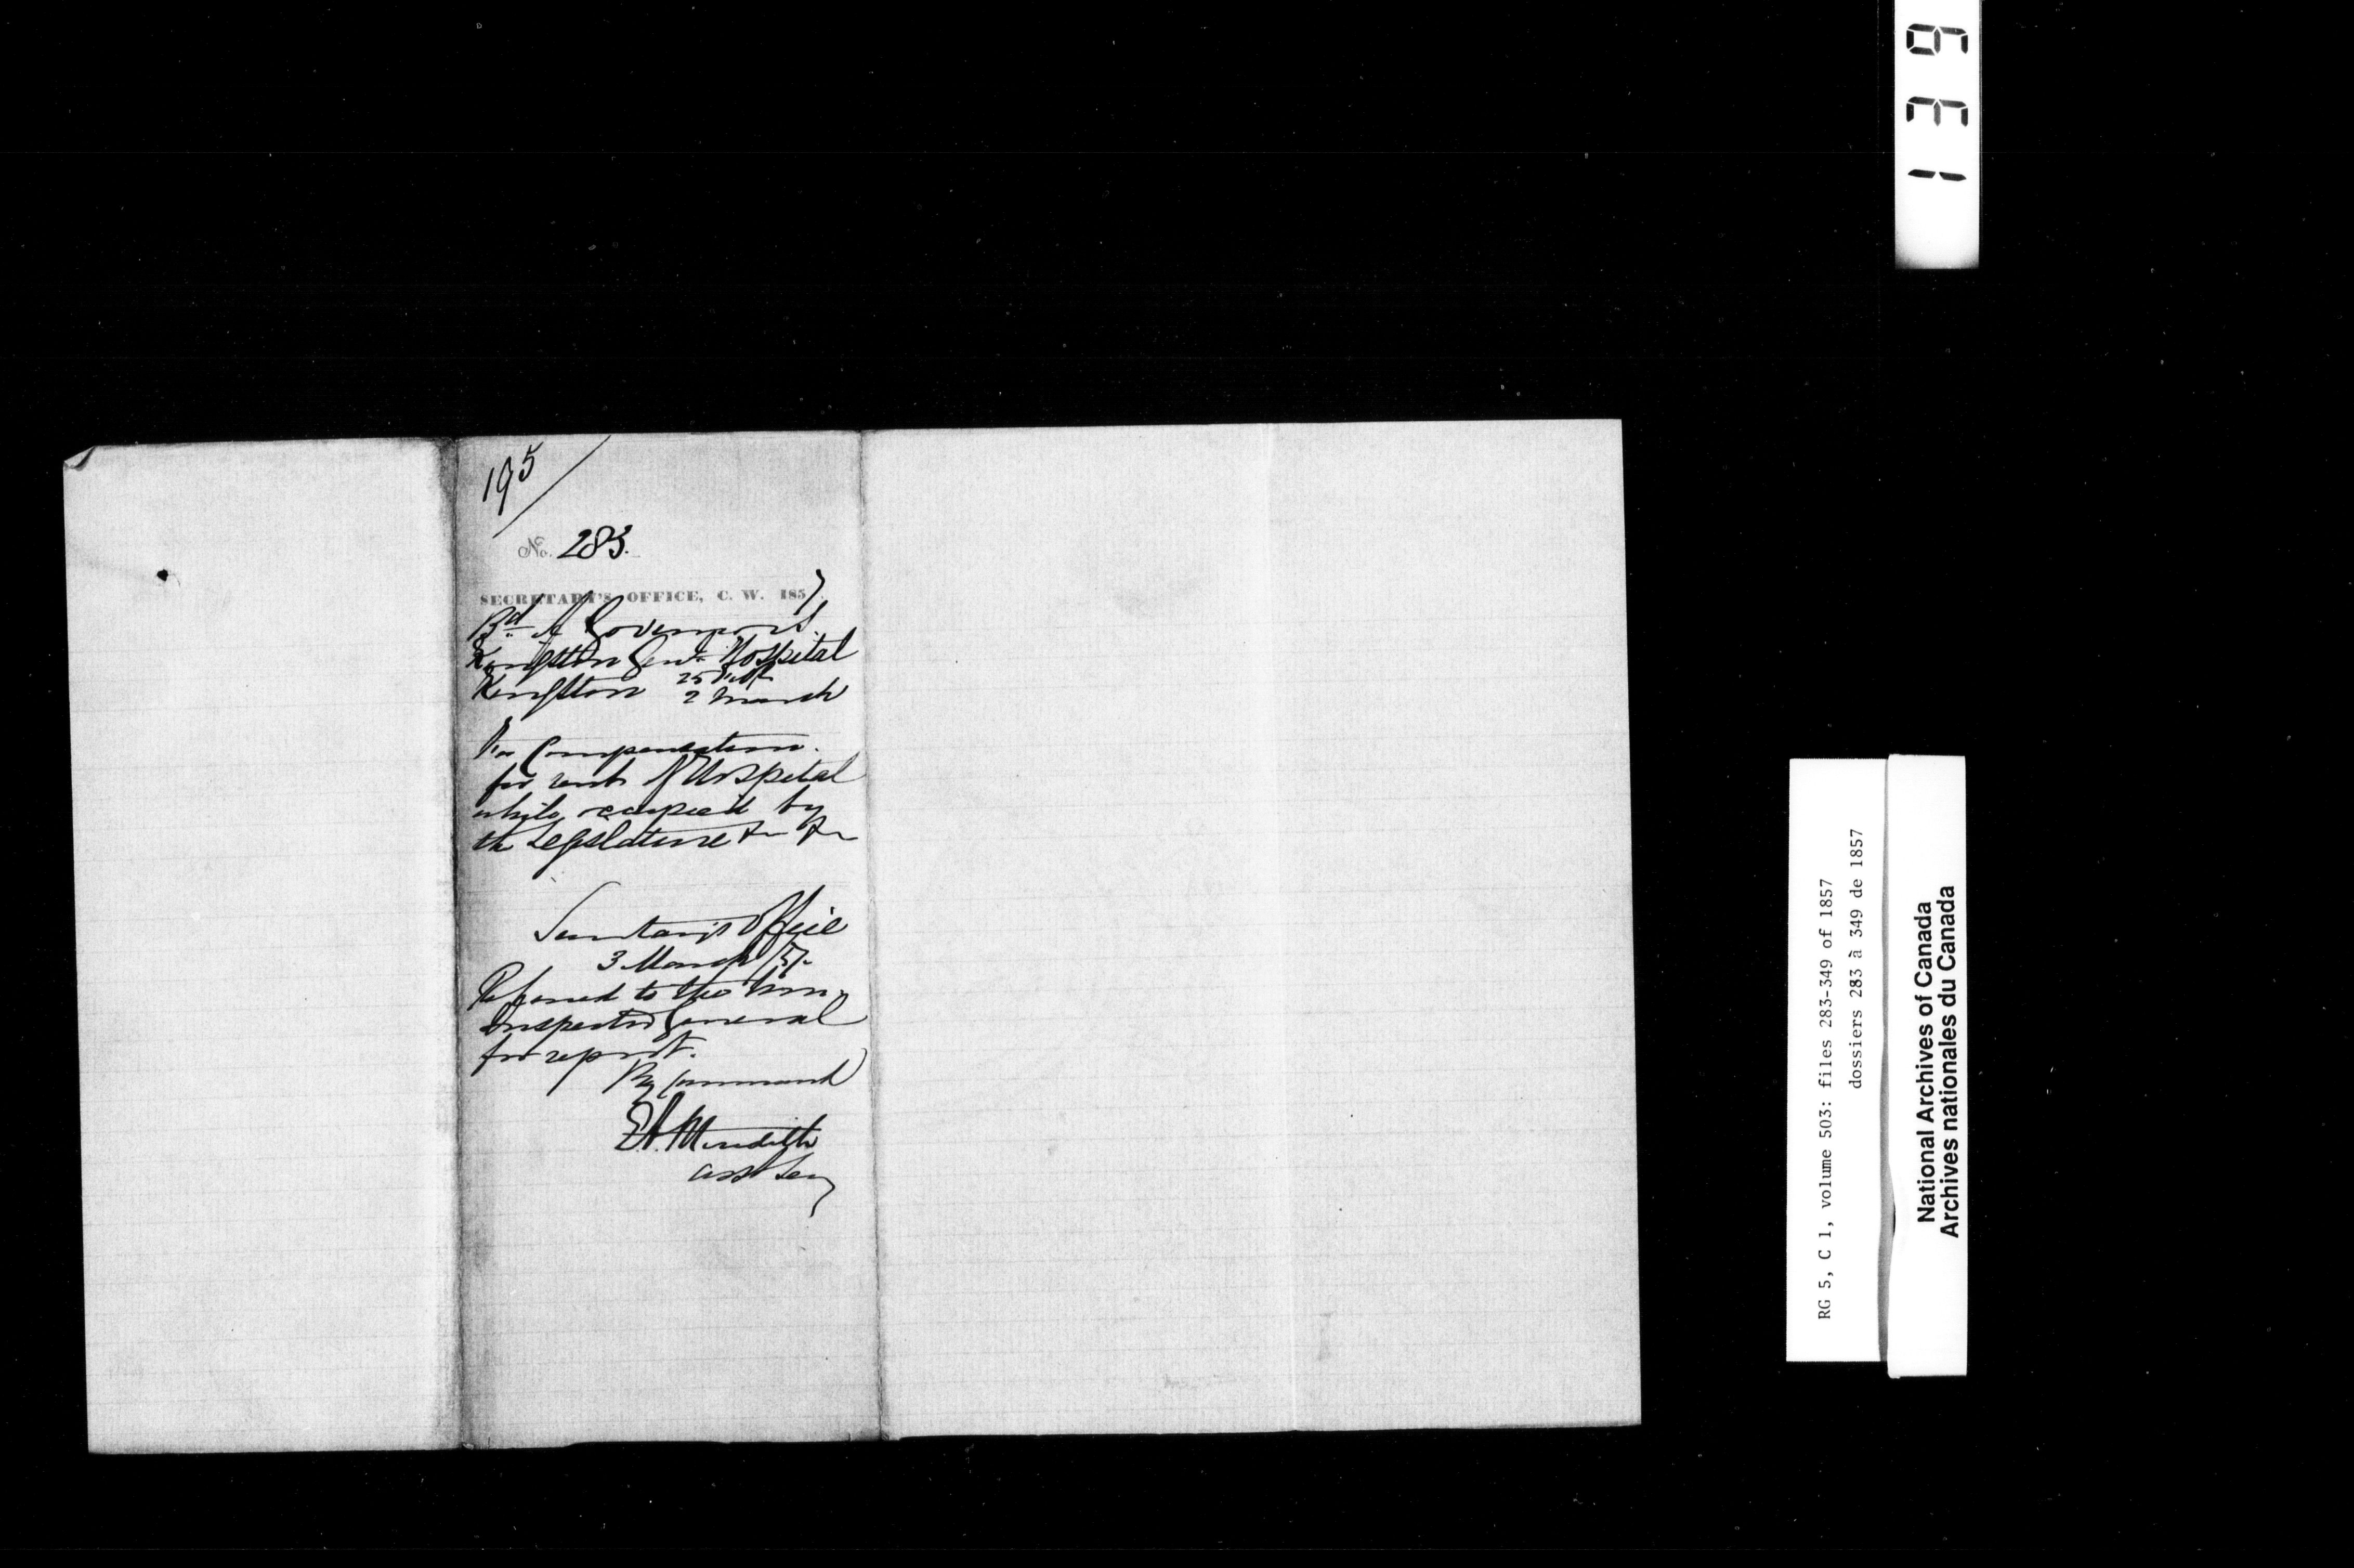 195
No. 283.
SECRETARY'S OFFICE, C. W. 1857
Bd. of Governors.
Kingston Genl. Hospital
Kingston 25 Feb
2 March
For Compensation.
for rent of Hospital
while occupied by
the Legislature &c &c
Secretary's Office
3 March /57.
Referred to the Hon.
Inspector General
for report.
By Command
E.A. Meredith
Asst Secy
139
RG 5, C 1, volume 503: files 283-349 of 1857
dossiers 283 à 349 de 1857
National Archives of Canada
Archives nationales du Canada